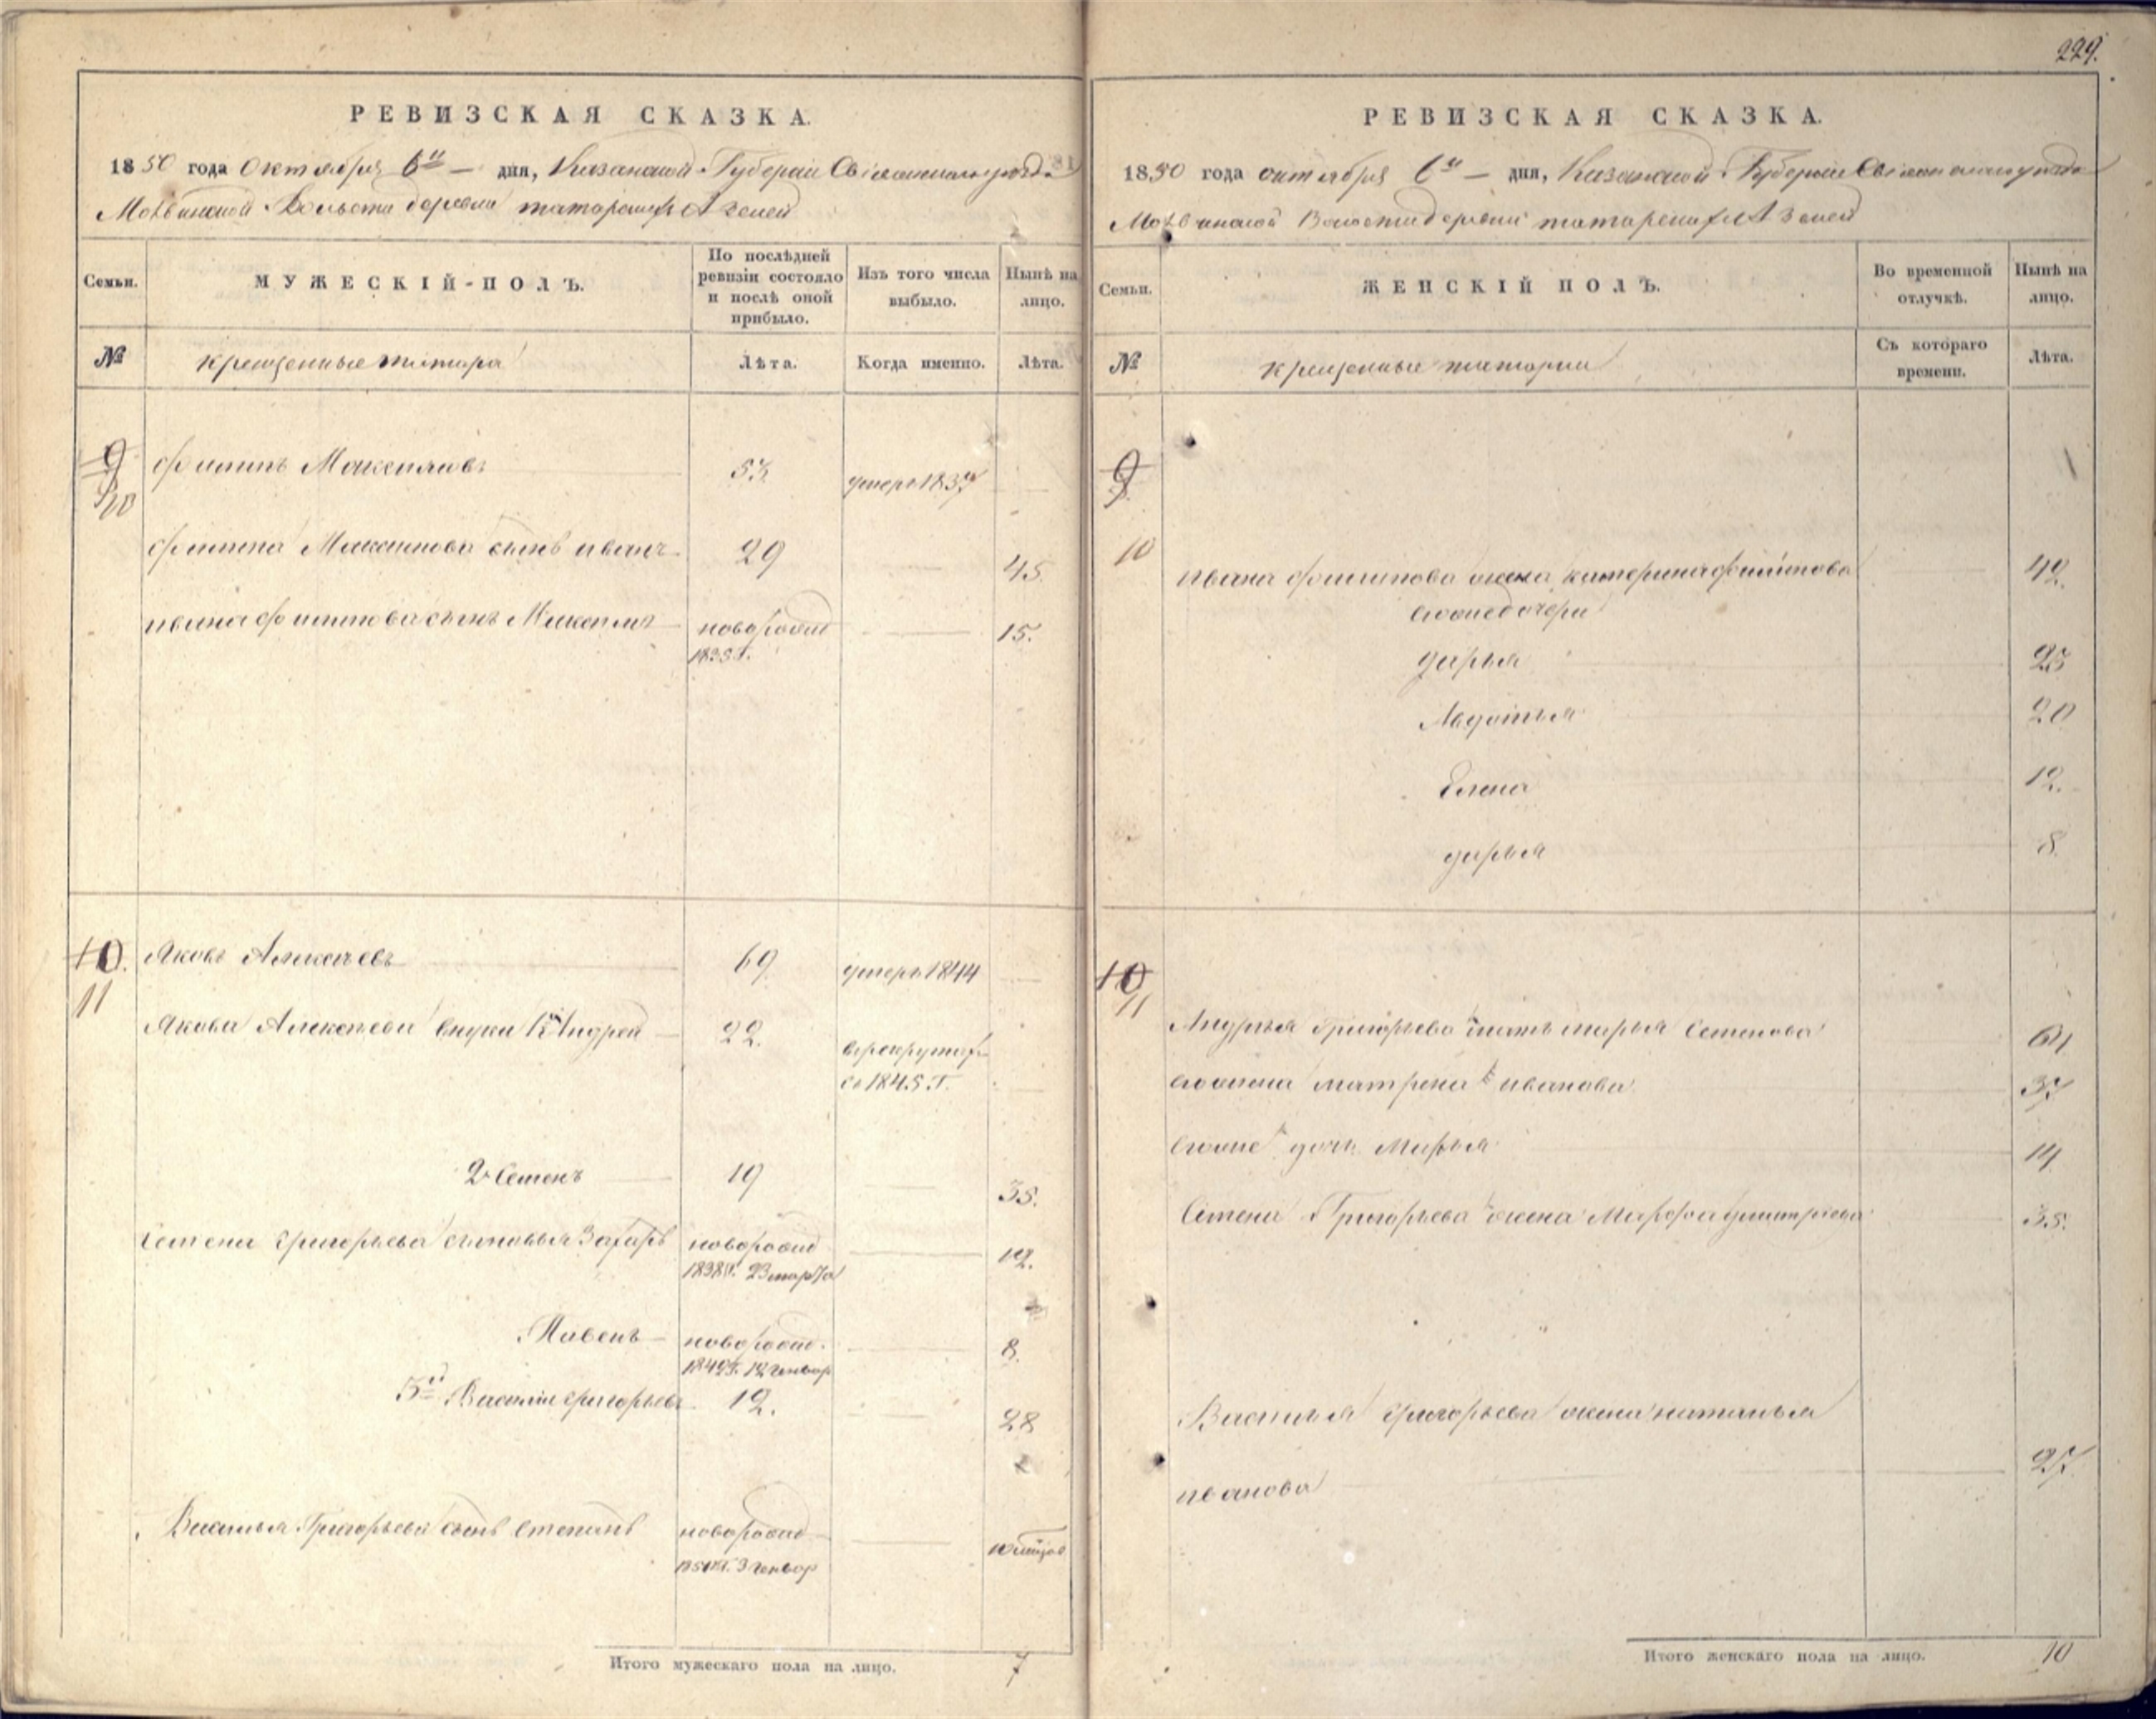 229.
РЕВИЗСКАЯ СКАЗКА.
1850 года Октября 6 дня, Казанской Губерніи
Волости деревни татарских Азелей
Семьи.
МУЖЕСКІЙ-ПОЛЪ.
По послѣдней ревизіи состояло и послѣ оной прибыло.
Изъ того числа выбыло.
Нынѣ на лицо.
№
крещенные татара
Лѣта.
Когда именно.
Лѣта.
9
10
53
умеръ 183
Филипа Максимова сынъ иванъ 29 45.
ивана филипова сынъ Максимъ новорожд 15.
1835 г.
10. Яковъ Алексѣевъ 69 умеръ 1844
11
Якова Алексѣева внуки 1й Андрей 22.
в рекрутах
съ 1845 г.
2й Семенъ 19 35.
Семена григорьева сыновья Захаръ новорожд 12.
1838 г. 23 марта
Павелъ новорожд. 8.
1842 г. 12 генвар
3й Василіи григорьевъ 12. 28
Василья Григорьева сынъ степанъ новорожд
1850 г. 3 генвар
Итого мужескаго пола на лицо. 7
РЕВИЗСКАЯ СКАЗКА.
1850 года октября 6 дня, Казанской Губерніи
Волости деревни татарских Азелей
Семьи.
ЖЕНСКІЙ ПОЛЪ.
Во временной отлучкѣ.
Нынѣ на лицо.
№
крещенные татарки
Съ котораго времени.
Лѣта.
9
10
ивана филипова жена катерина филипова 42.
его же дочери
дарья 23
Авдотья 20
Елена 12.
дарья 8.
10
11
Андрея Григорьева мать марья Семенова
его жена матрена иванова 37
его же дочь Марья 14
Семена Григорьева жена Марфа дмитріева 35.
Василья григорьева жена наталья
иванова 27.
Итого женскаго пола на лицо. 10